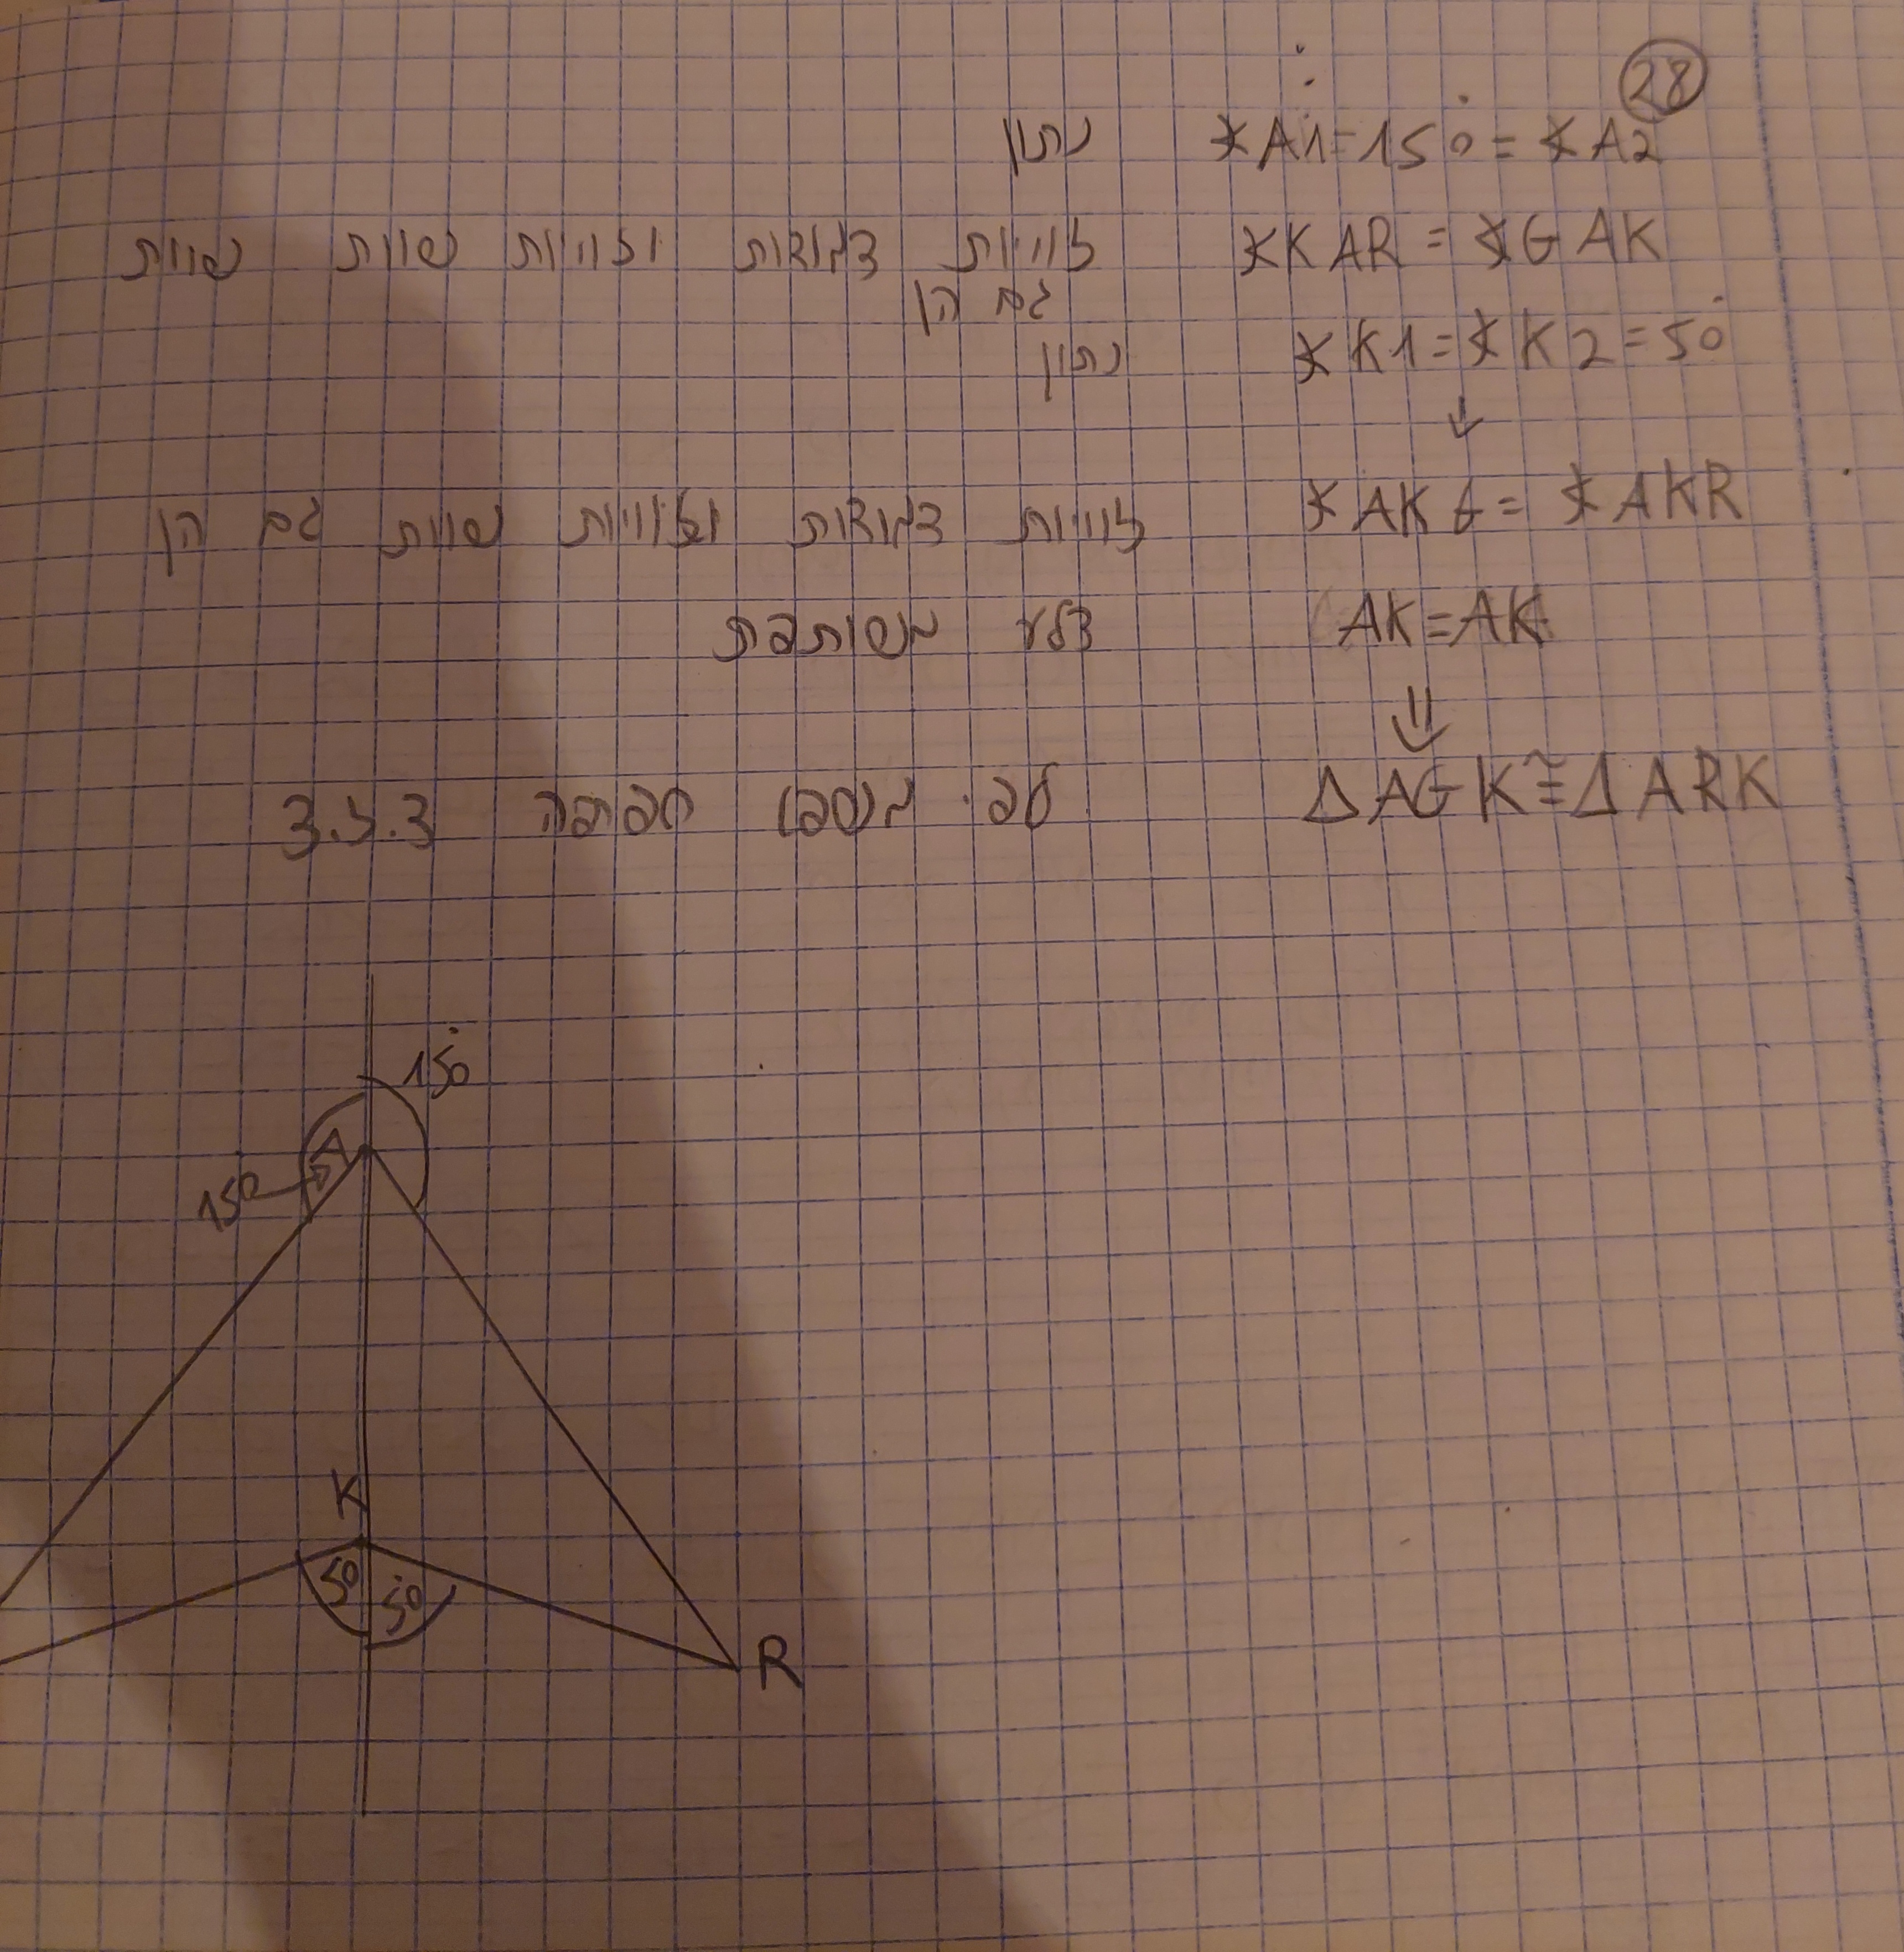 28
∢A1=150°=∢A2 נתון
∢KAR = ∢GAK זוויות צמודות וזוויות שוות שוות
גם הן
∢K1=∢K2=50° נתון
↓
∢AKG=∢AKR זוויות צמודות וזוויות שוות גם הן
AK=AK צלע משותפת
⇓
ΔAGK≅ΔARK לפי משפט חפיפה ז.צ.ז
150°
A
150
K
50 50°
R